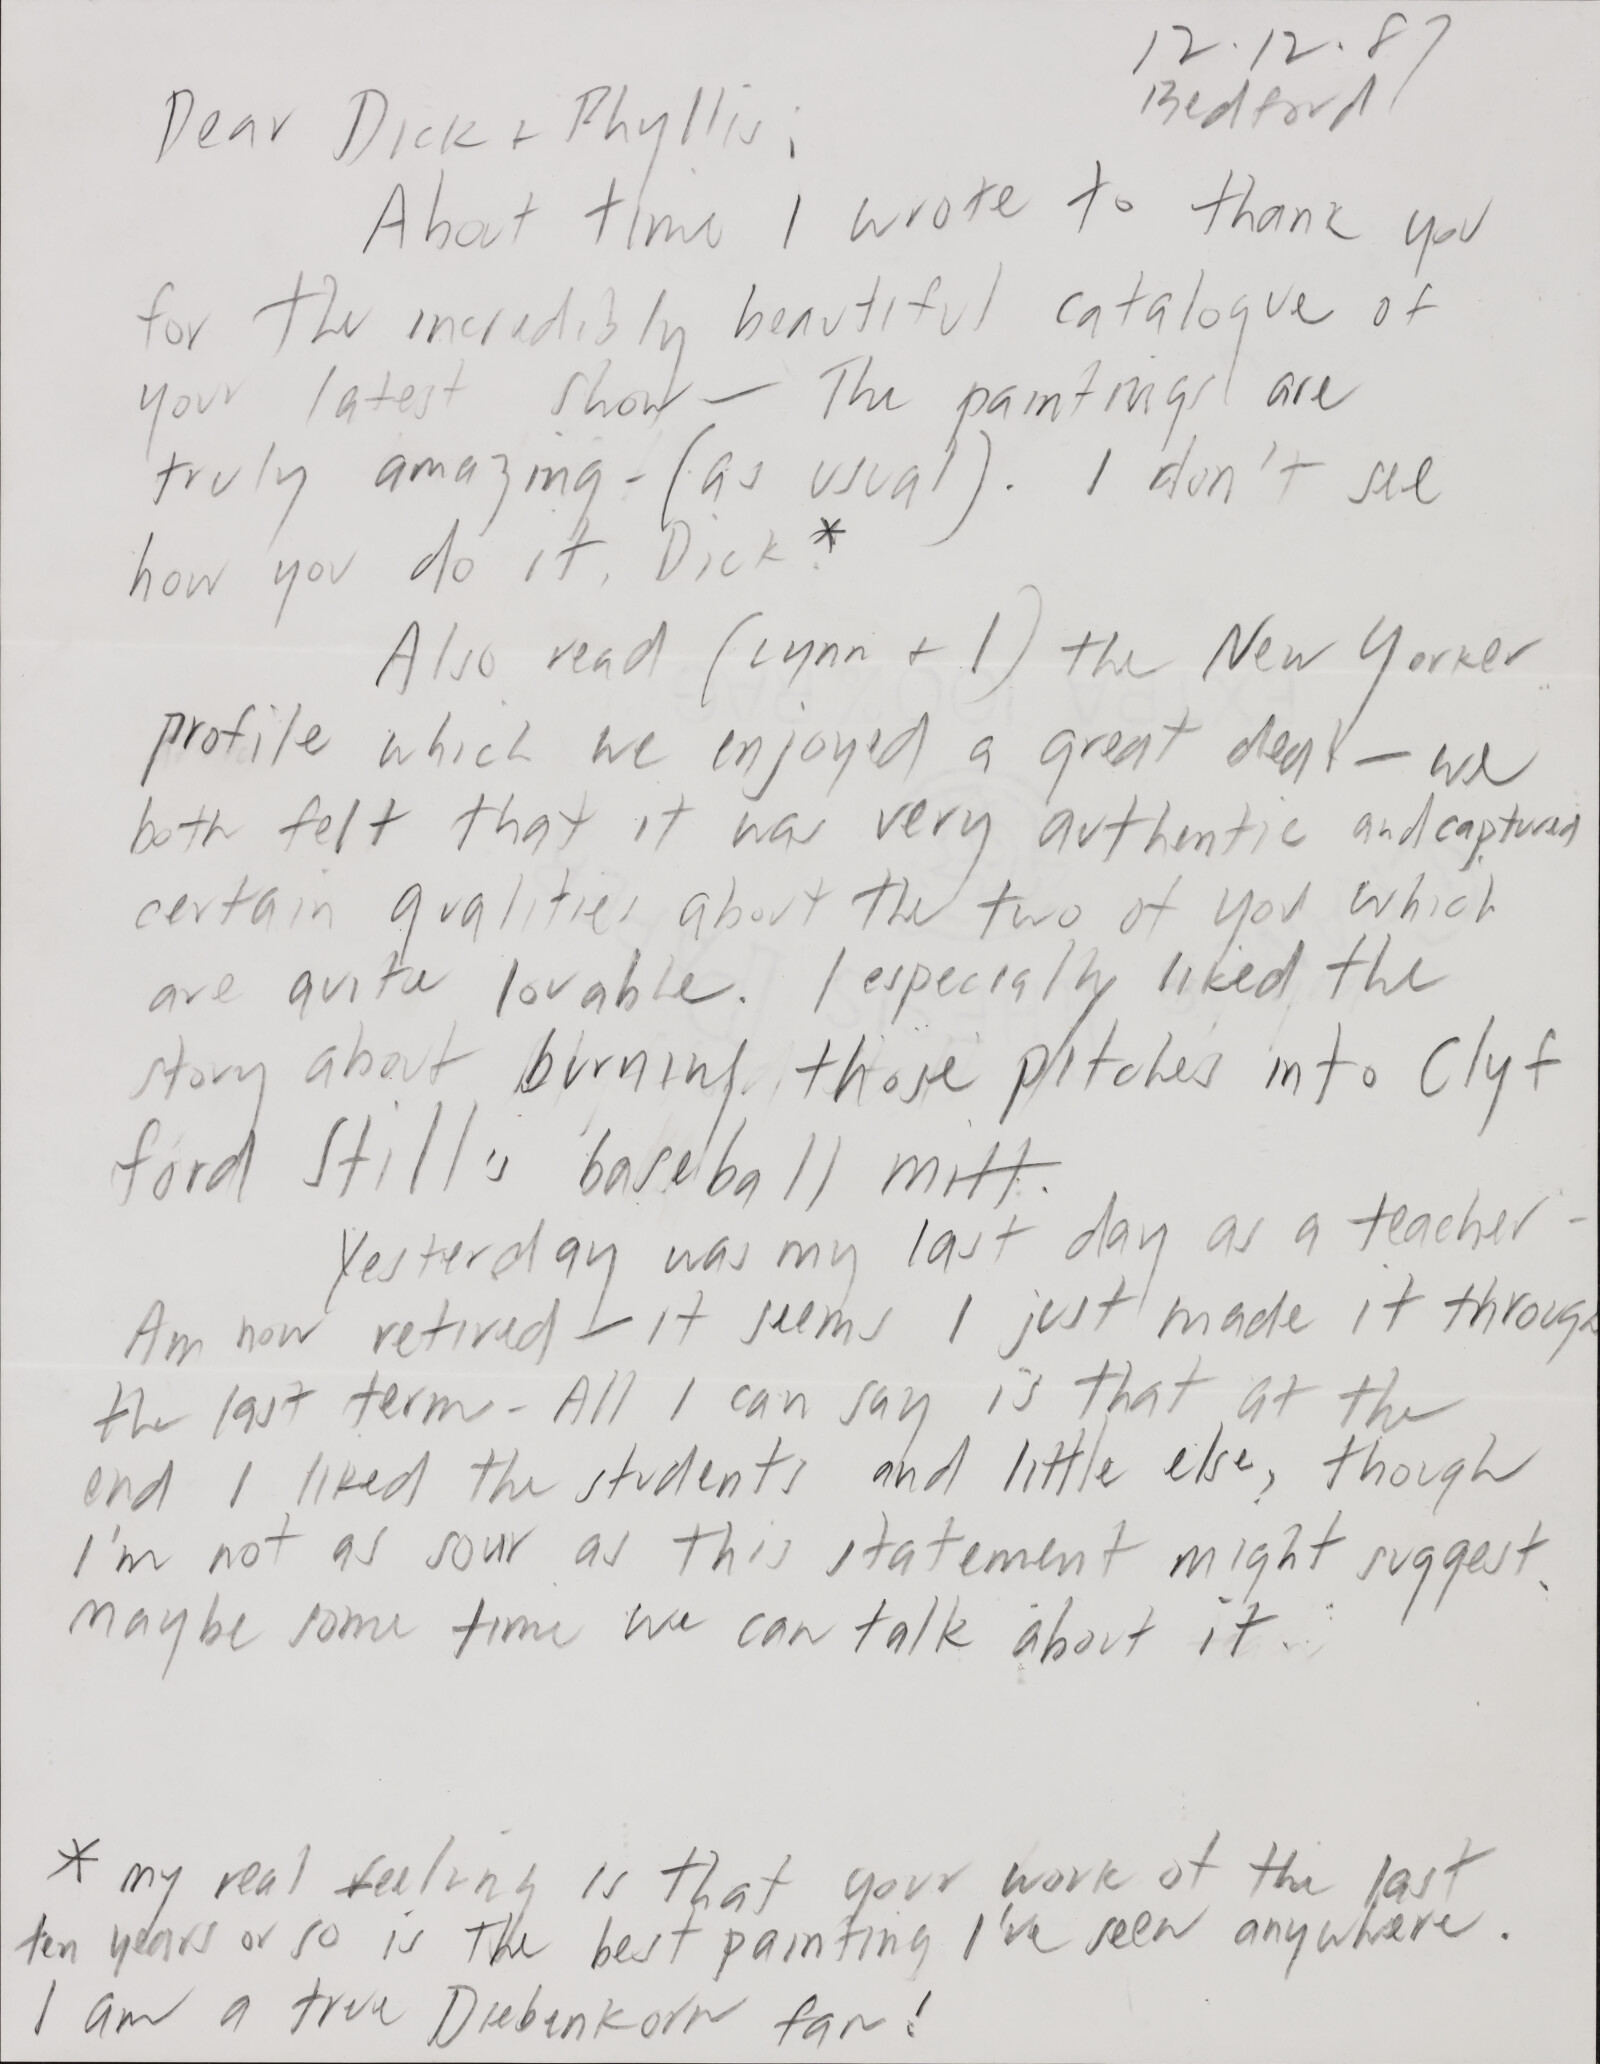 12.12.87
Bedford
Dear Dick + Phyllis;
About time I wrote to thank you
for the incredibly beautiful catalogue of
your latest show — The paintings are
truly amazing - (as usual). I don't see
how you do it, Dick.*
Also read (Lynn + I) the New Yorker
profile which we enjoyed a great deal — we
both felt that it was very authentic and captured
certain qualities about the two of you which
are quite lovable. I especially liked the
story about burning those pitches into Clyf
ford Still's baseball mitt.
Yesterday was my last day as a teacher -
Am now retired — it seems I just made it through
the last term - All I can say is that at the
end I liked the students and little else, though
I'm not as sour as this statement might suggest.
Maybe some time we can talk about it.
* my real feeling is that your work of the last
ten years or so is the best painting I've seen anywhere.
I am a true Diebenkorn fan!